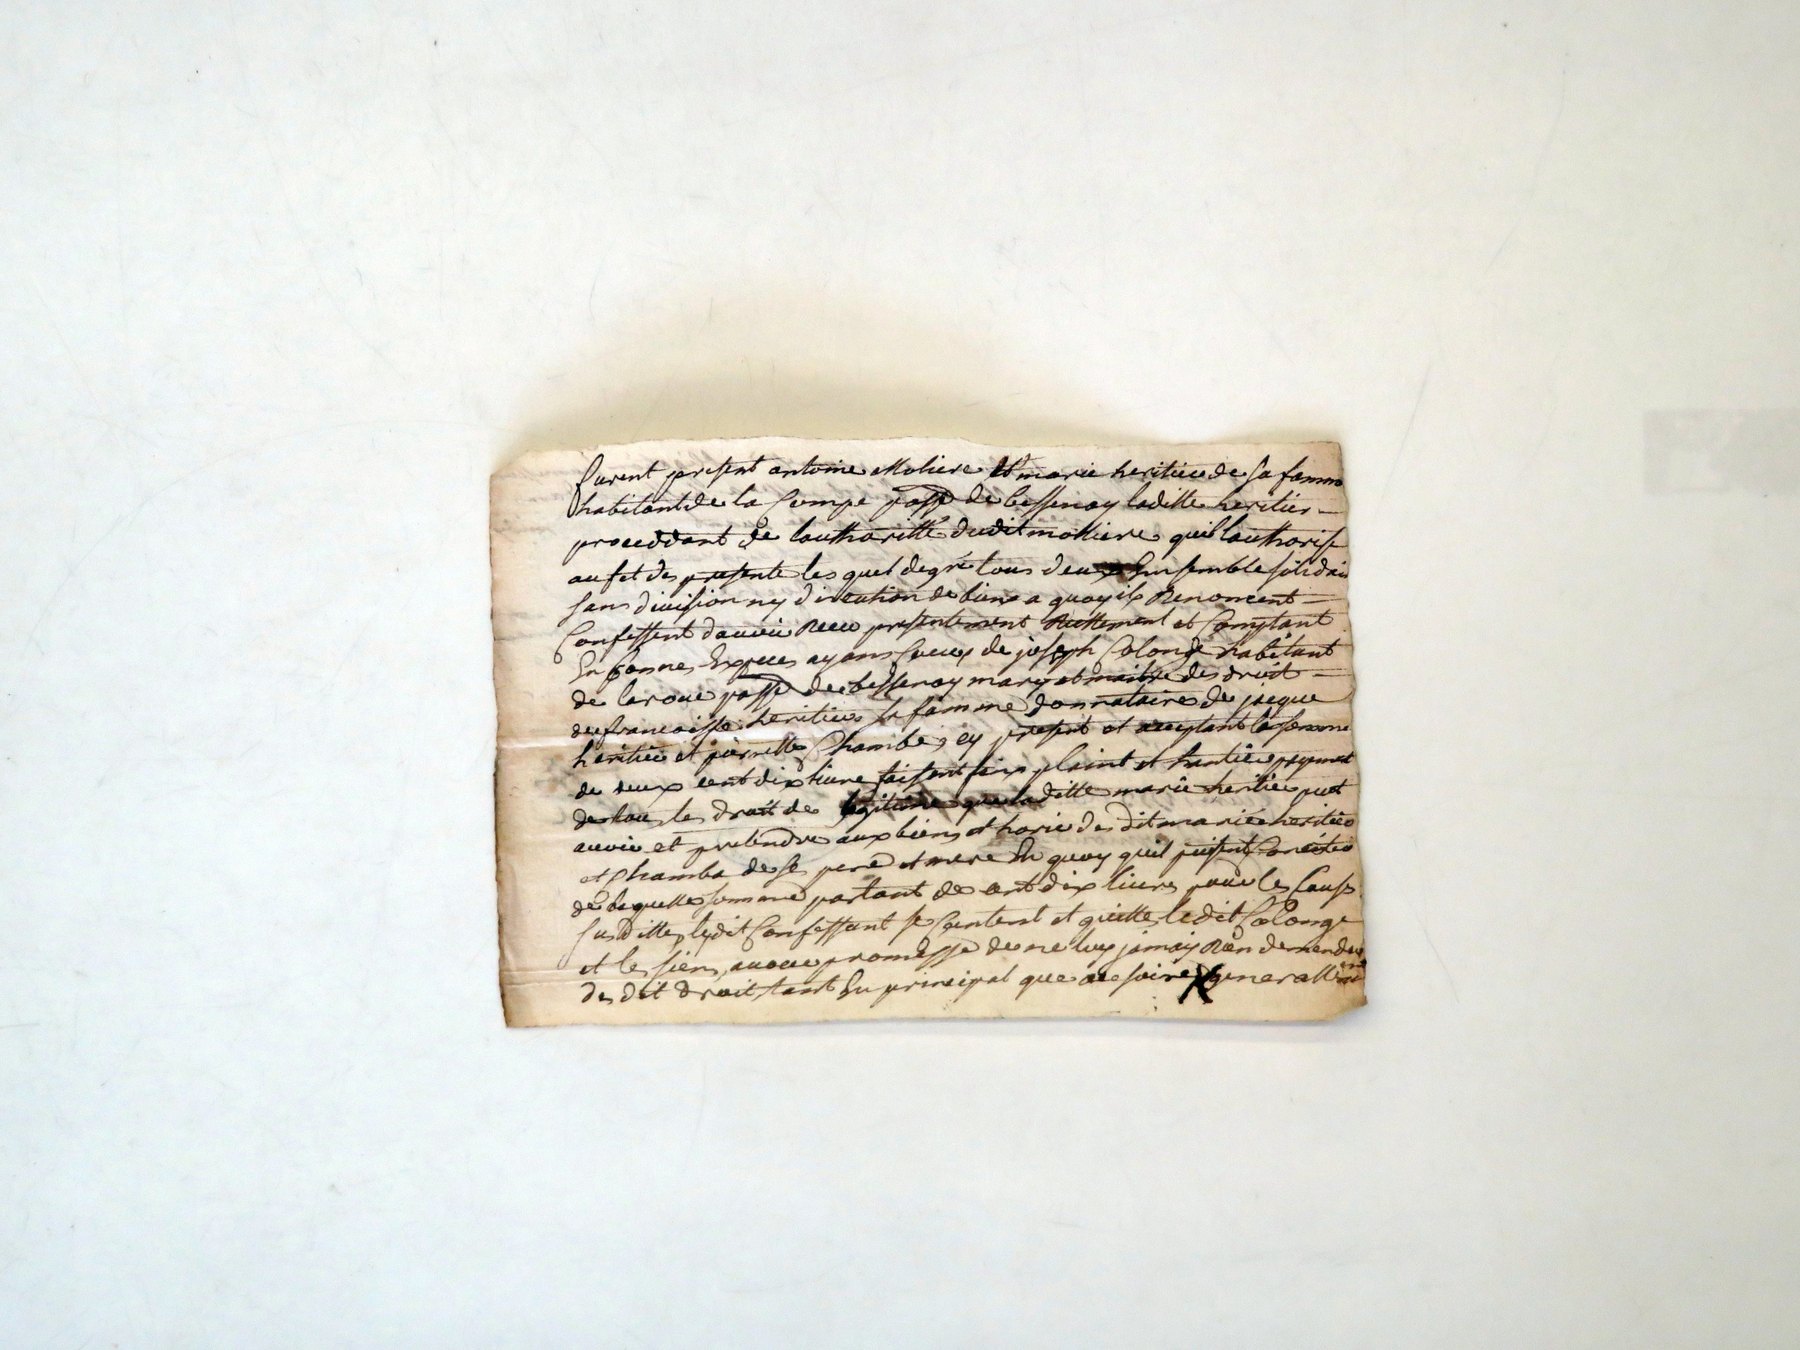 furent present antoine Moliere Et marie heritier de Sa famme
habitant de la Combe de bessenay laditte heritier
proceddant de lauthoritté dudit molliere quil lauthorise
au fet des presente les quel de gré tous deux Ensemble solidair
sans division ny discution de biens a quoy ils Renoncent
Confessent dauoir Receu presentement Reellement et Comptant
En bonnes Especes ayans Cours de joseph Colonge habitant
de laroue de bessenay mary et maitre des droit
de francoisse heritier sa famme donnataire de jacque
heritier et pierrette Chambe, cy present et acceptant la somme
de deux cent dix liure faisant fin plaint et Entier payement
de tous les droit de legitime que laditte marie heritier peut
auoir et pretendre aux biens et horie des dit marie heritier
et Chamba de Se pere et mere En quoy quil puissent Concister
de laquelle somme partant de cent dix liures pour les Causes
Susditte, ledit Confessant se Contentent et quitte ledit Colonge
et les siens, auec promesse de ne luy jamais Rien demender
des dit droit tant En principal que accesoire generallement